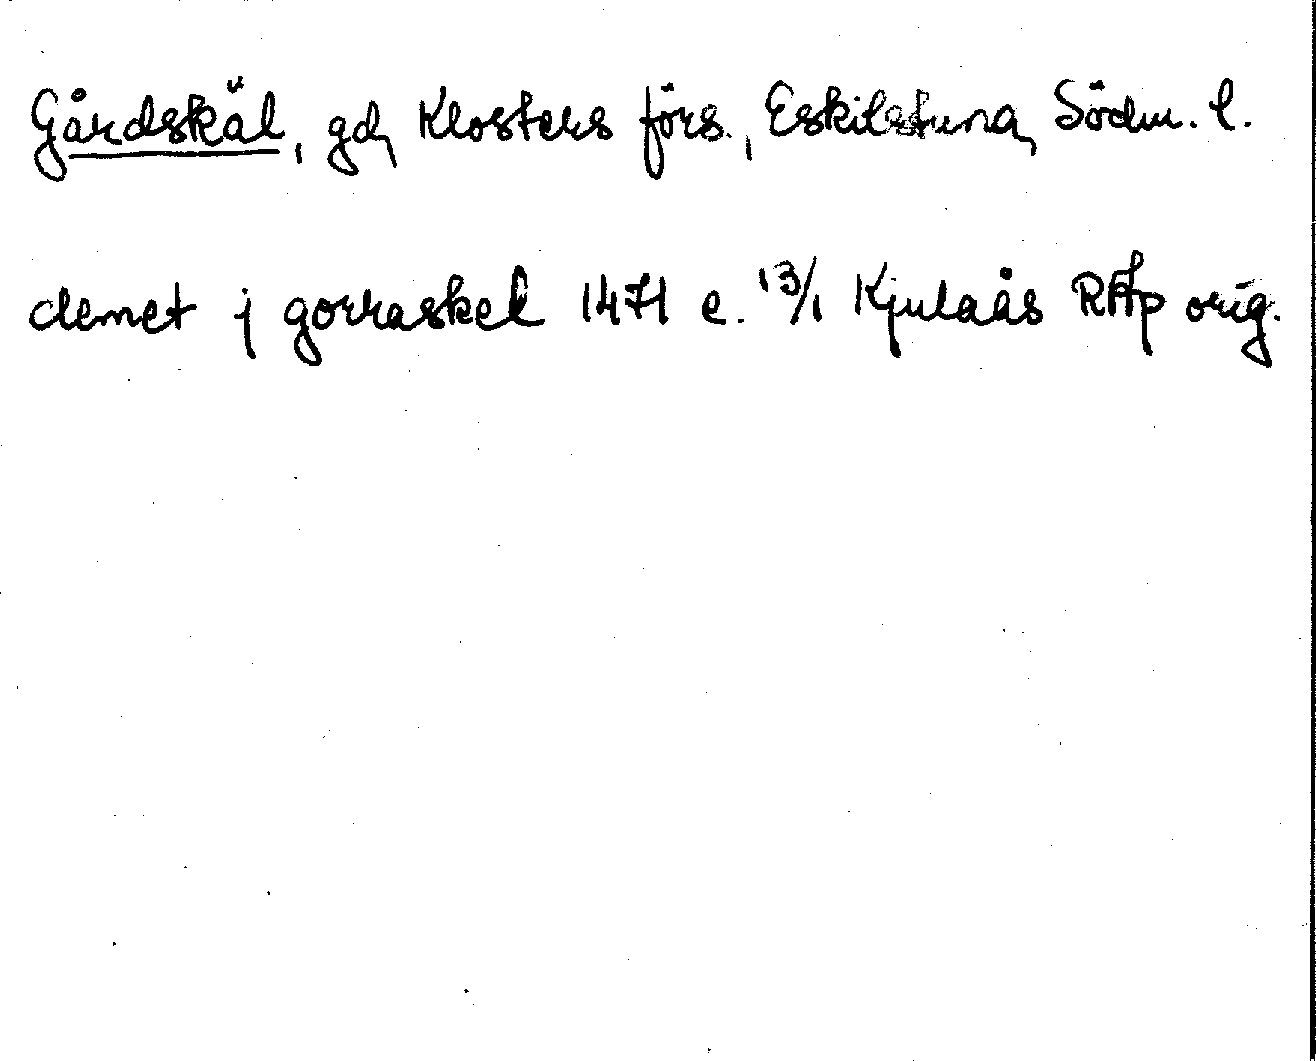 Gårdskäl, gd, Klosters förs., Eskilstuna, Södm. l.
clemet j gorraskel 1471 e. 13/1 Kjulaås RAp orig.